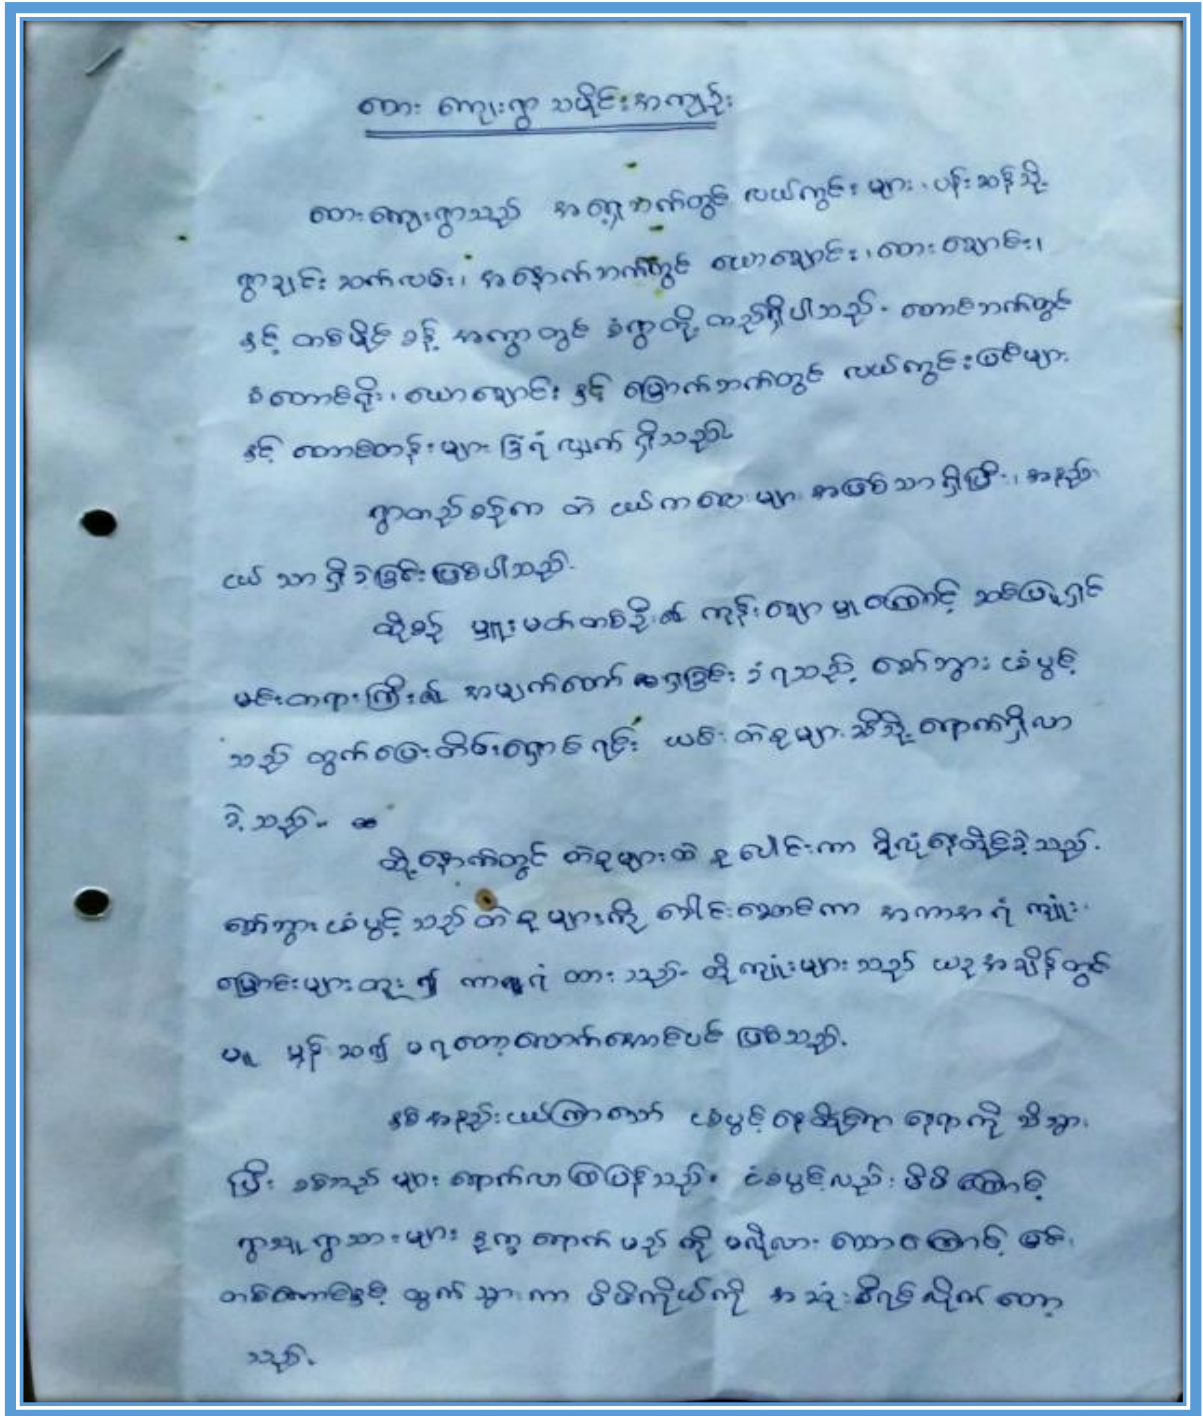 ထား ကျေးရွာ သမိုင်းအကျဉ်း
ထားကျေးရွာသည် အရှေ့ဘက်တွင် လယ်ကွင်းများ၊ ပန်းဆန်သို့
ရွာချင်းဆက်လမ်း၊ အနောက်ဘက်တွင် ယောချောင်း၊ ထားချောင်း၊
နှင့် တစ်မိုင်ခန့် အကွာတွင် ခံရွာတို့ တည်ရှိပါသည်။ တောင်ဘက်တွင်
ခံတောင်ရိုး၊ ယောချောင်း နှင့် မြောက်ဘက်တွင် လယ်ကွင်းပြင်များ
နှင့် တောင်တန်းများ ခြံရံ လျှက် ရှိသည်။
ရွာတည်စဉ်က တဲ ငယ်ကလေးများ အဖြစ်သာ ရှိပြီး၊ အနည်း
ငယ် သာ ရှိခဲ့ခြင်း ဖြစ်ပါသည်။
ထိုစဉ် မှူးမတ်တစ်ဦး၏ ကုန်းချော မှုကြောင့် ဆင်ဖြူရှင်
မင်းတရားကြီး၏ အမျက်တော် ရှခြင်း ခံရသည့် စော်ဘွား ငခံပွင့်
သည် ထွက်ပြေးတိမ်းရှောင်ရင်း ယင်းတဲစုများဆီသို့ ရောက်ရှိလာ
ခဲ့သည်။
ထို့နောက်တွင် တဲစုများထဲ စုပေါင်းကာ ခိုလှုံနေထိုင်ခဲ့သည်။
စော်ဘွား ငခံပွင့် သည် တဲ စုများကို ခေါင်းဆောင်ကာ အကာအရံ ကျုံး
မြောင်းများတူး၍ ကာရံ ထားသည်။ ထိုကျုံးများသည် ယခုအချိန်တွင်
မူ မှန်းဆ၍ မရတော့လောက်အောင်ပင် ဖြစ်သည်။
နှစ်အနည်းငယ်ကြာသော် ငခံပွင့် နေထိုင်ရာ နေရာကို သိသွား
ပြီး စစ်သည်များ ရောက်လာကြပြန်သည်။ ငခံပွင့်လည်း မိမိကြောင့်
ရွာသူရွာသားများ ဒုက္ခရောက်မည်ကို မလိုလားသောကြောင့် မြင်း
တစ်ကောင်နှင့် ထွက်သွားကာ မိမိကိုယ်ကို အဆုံးစီရင်လိုက်တော့
သည်။